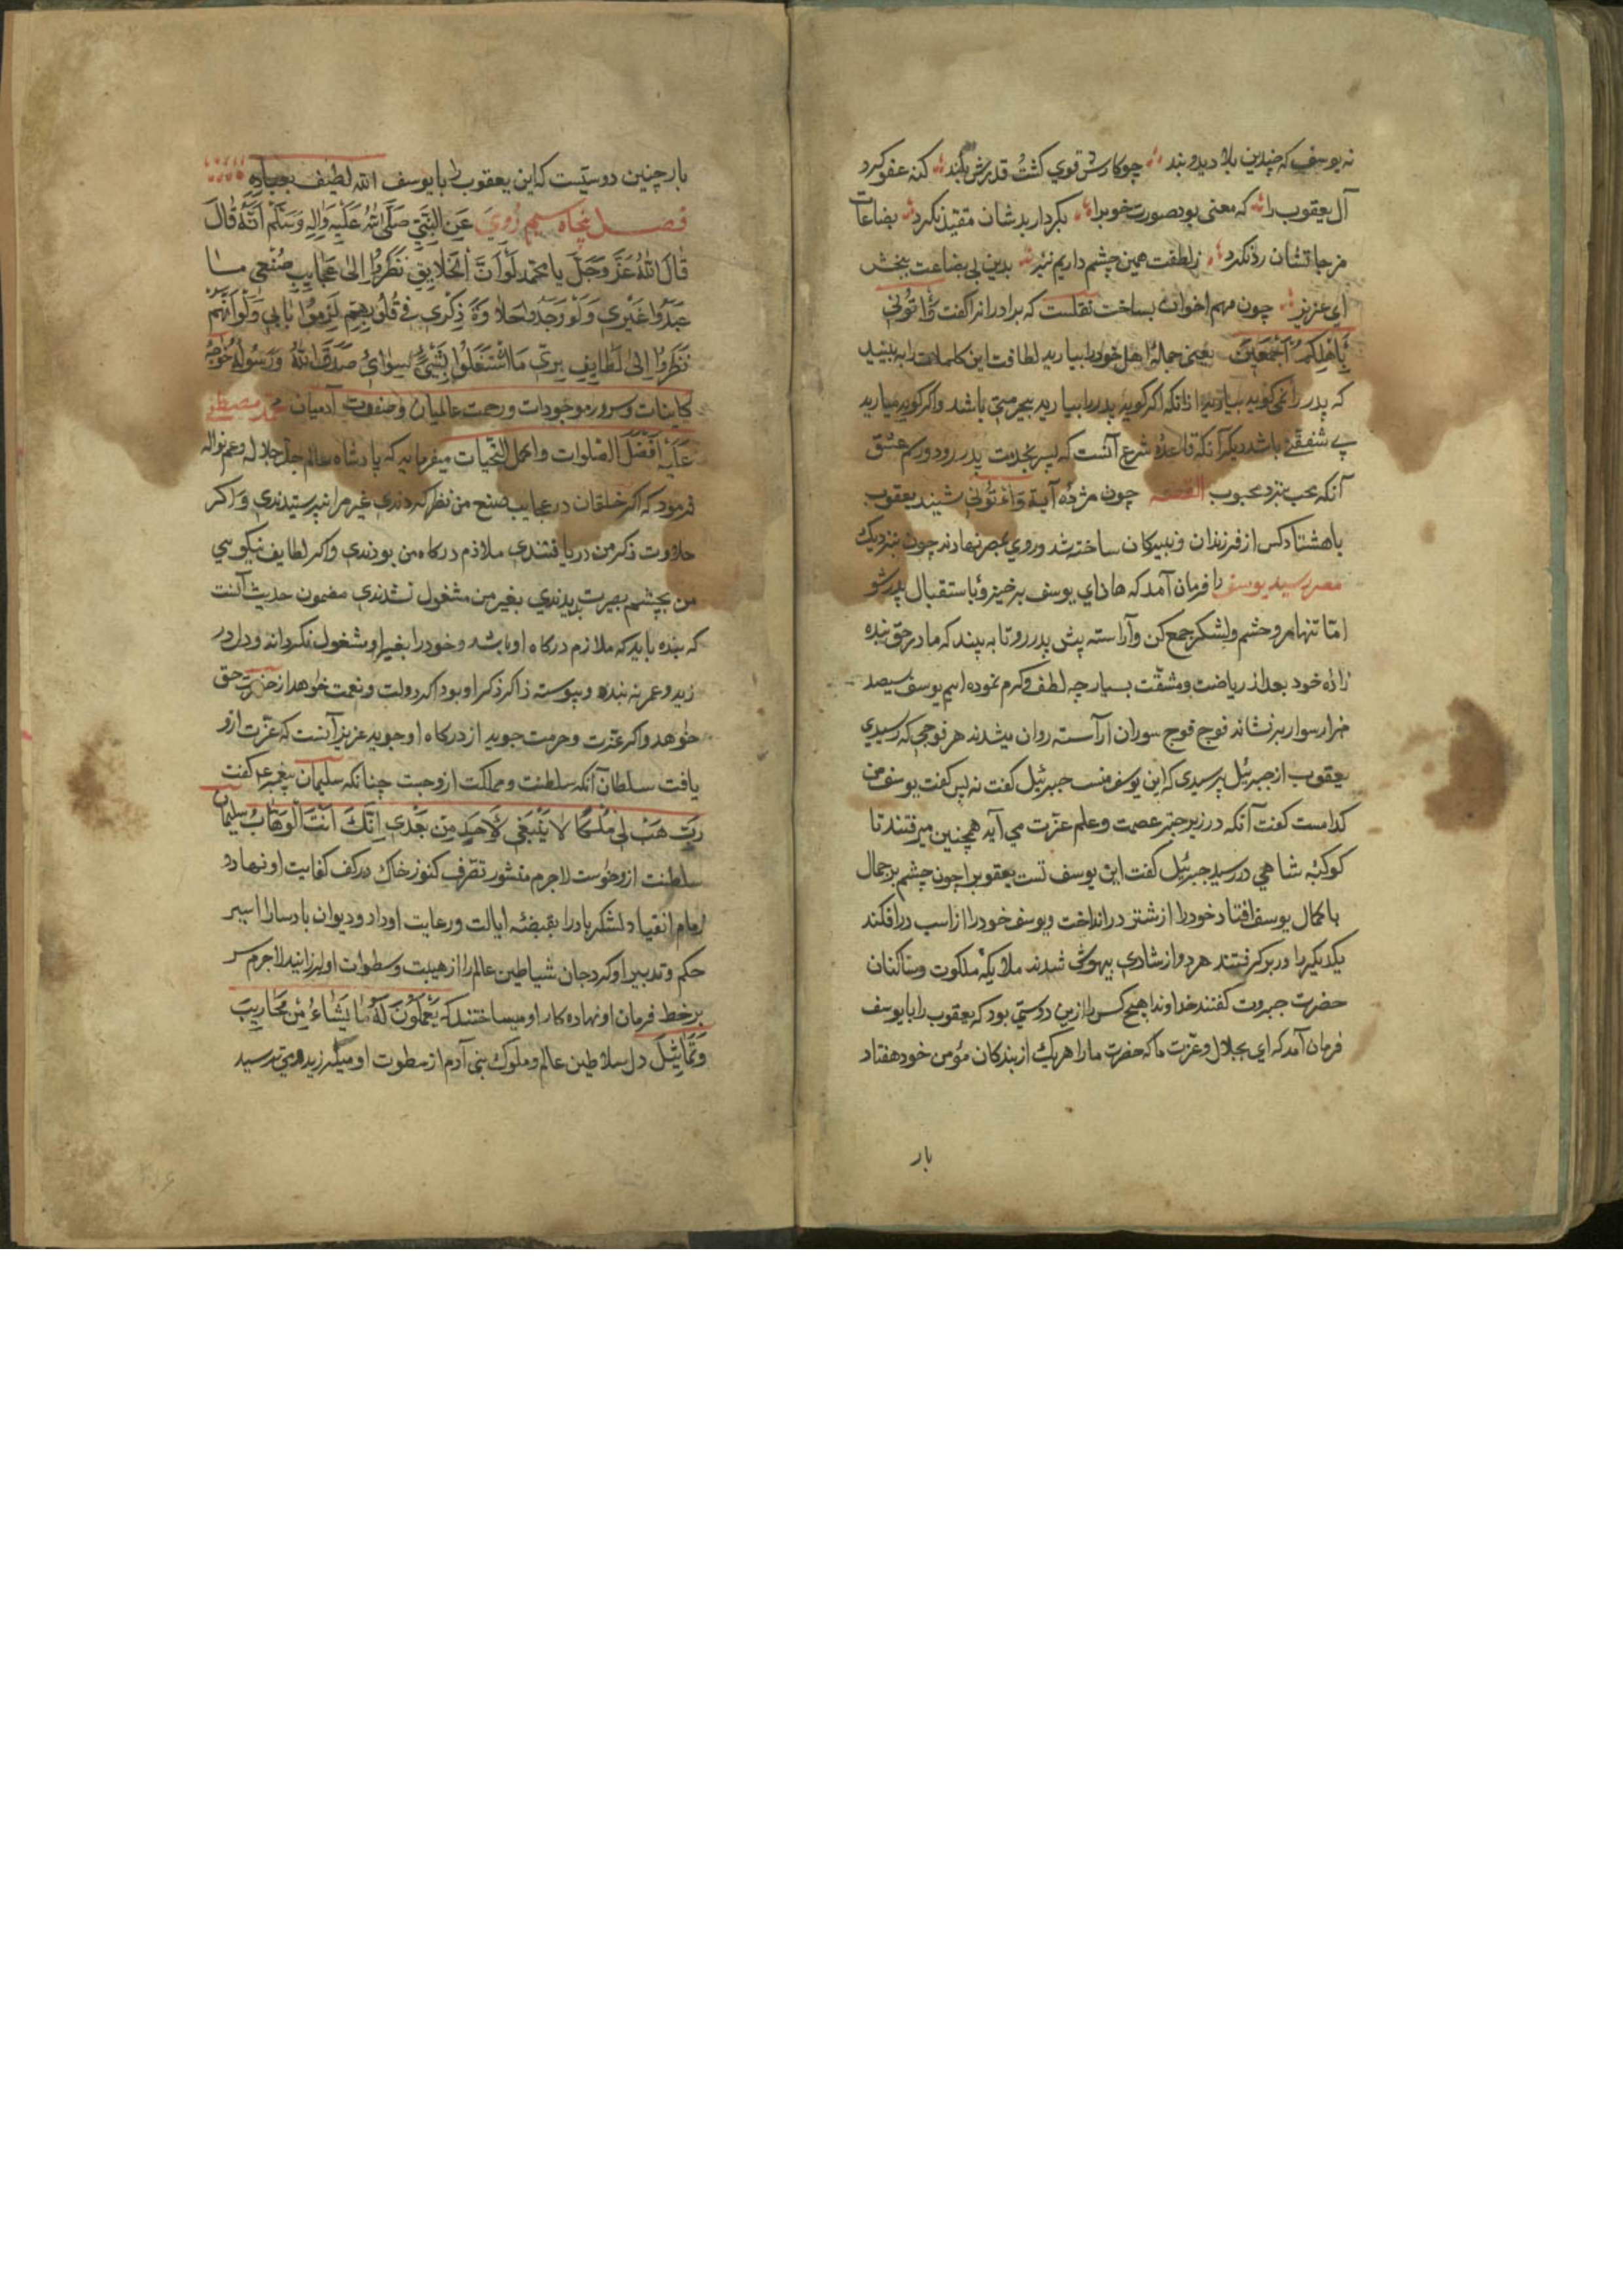 نه یوسف که چندین بلا دید و بند چو کارش قوی کشت و قدرش بلند کنه عفو کرد
آل یعقوب را که معنی بود صورت خوب را بکردار بدشان مقید نکرد بضاعات
مزجاتشان رد نکرد ز لطفت همین چشم داریم نیز بدین بی بضاعت ببخش
ای عزیز چون مهم اخوان بساخت نقلست که برادرانرا کفت وَأْتُونِی
بِأَهْلِكُمْ أَجْمَعِينَ یعنی جملهٔ اهل خود را بیارید لطافت این کلمات را ببینید
که پدر را نمی کوید بیارید از آنکه اکر کوید پدر را بیارید بیحرمتی باشد و اکر کوید میارید
بی شفقتی باشد دیکر آنکه قاعدهٔ شرع آنست که پسر بخدمت پدر رود و رسم عشق
آنکه محب بنزد محبوب القصه چون مژدهٔ آیة وَأْتُونِی شنید یعقوب
با هشتاد کس از فرزندان و نبیرکان ساخته شد و روی بمصر نهادند چون بنزدیک
مصر رسید یوسف را فرمان آمد که هان ای یوسف برخیز و باستقبال پدر شو
اما تنها مرو حشم و لشکر جمع کن و آراسته پیش پدر رو تا به بیند که ما در حق بنده
زاده خود بعد از ریاضت و مشقت بسیار چه لطف و کرم نموده ایم یوسف سیصد
هزار سوار برنشاند فوج فوج سوران آراسته روان میشدند هر فوجی که رسیدی
یعقوب از جبرئیل پرسیدی که این یوسف منست جبرئیل کفت نه پس کفت یوسف من
کدامست کفت آنکه در زیر چتر عصمت و علم عزت می آید همچنین میرفتند تا
کوکبهٔ شاهی در رسید جبرئیل کفت این یوسف تست یعقوب را چون چشم بر جمال
با کمال یوسف افتاد خود را از شتر در انداخت و یوسف خود را از اسب در افکند
یکدیکر را در بر کرفتند هر دو از شادی بیهوش شدند ملایکهٔ ملکوت و ساکنان
حضرت جبروت کفتند خداوندا هیچ کس را ازین دوستی بود که یعقوب را با یوسف
فرمان آمد که ای بجلال و عزت ما که حضرت ما را هر یک از بندکان مؤمن خود هفتاد
بار
بار چنین دوستیست که این یعقوب را با یوسف الله لطیف بعباده
فصل پنجاه سیم رُوِیَ عَنِ النَّبِیِّ صَلَّی اللهُ عَلَیْهِ وَالِهِ وَسَلَّمْ اَنَّهُ قَالَ
قَالَ اللهُ عَزَّ وَجَلَّ یا محمد لَوْ اَنَّ الْخَلَایِقِ نَظَرُوا اِلیٰ عَجَایِبِ صُنْعِی مَا
عَبَدُوا غَیْرِی وَلَوْ وَجَدُوا حَلَاوَةَ ذِکْرِی فِی قُلُوبِهِم لَزِمُوا بَابِی وَلَوْ اَنَّهُمْ
نَظَرُوا اِلیٰ لَطَایِفِ بِرِّی مَا اشْتَغَلُوا بِشَیْءٍ سِوَایَ صَدَقَ اللهُ وَرَسُولُهُ خواجهٔ
کاینات و سرور موجودات و رحمت عالمیان و صفوت آدمیان محمد مصطفی
عَلَیْهِ اَفْضَلُ الصلوات و اکمل التحیات میفرماید که پادشاه عالم جل جلاله و عم نواله
فرمود که اکر خلقان در عجایب صنع من نظر کردندی غیر مرا نپرستیدندی و اکر
حلاوت ذکر من دریافتندی ملازم درکاه من بودندی و اکر لطایف نیکویی
من بچشم بصیرت بدیدندی بغیر من مشغول نشدندی مضمون حدیث آنست
که بنده باید که ملازم درکاه او باشد و خود را بغیر او مشغول نکرداند و دل در
زید و عمر نه بندد و پیوسته ذاکر ذکر او بود اکر دولت و نعمت خواهد از حضرت حق
خواهد و اکر عزت و حرمت جوید از درکاه او جوید عزیز آنست که عزت ازو
یافت سلطان آنکه سلطنت و مملکت ازو جست چنانکه سلیمان پیغمبر ع م کفت
رَبِّ هَبْ لِی مُلْکًا لَا یَنْبَغِی لِأَحَدٍ مِنْ بَعْدِی اِنَّکَ اَنْتَ الْوَهَّابُ سلیمان
سلطنت ازو خواست لاجرم منشور تصرف کنوز خاک در کف کفایت او نهاد و
زمام انقیاد لشکر باد را بقبضهٔ ایالت و رعایت او داد و دیوان باد سار را اسیر
حکم و تدبیر او کرد جان شیاطین عالم را از هیبت و سطوات او لرزانید لاجرم سر
بر خط فرمان او نهاده کار او میساختند که یَعْمَلُونَ لَهُ مَا یَشَاءُ مِنْ مَحَارِیبَ
وَتَمَاثِیلَ دل سلاطین عالم و ملوک بنی آدم از سطوت او میلرزید و می ترسید